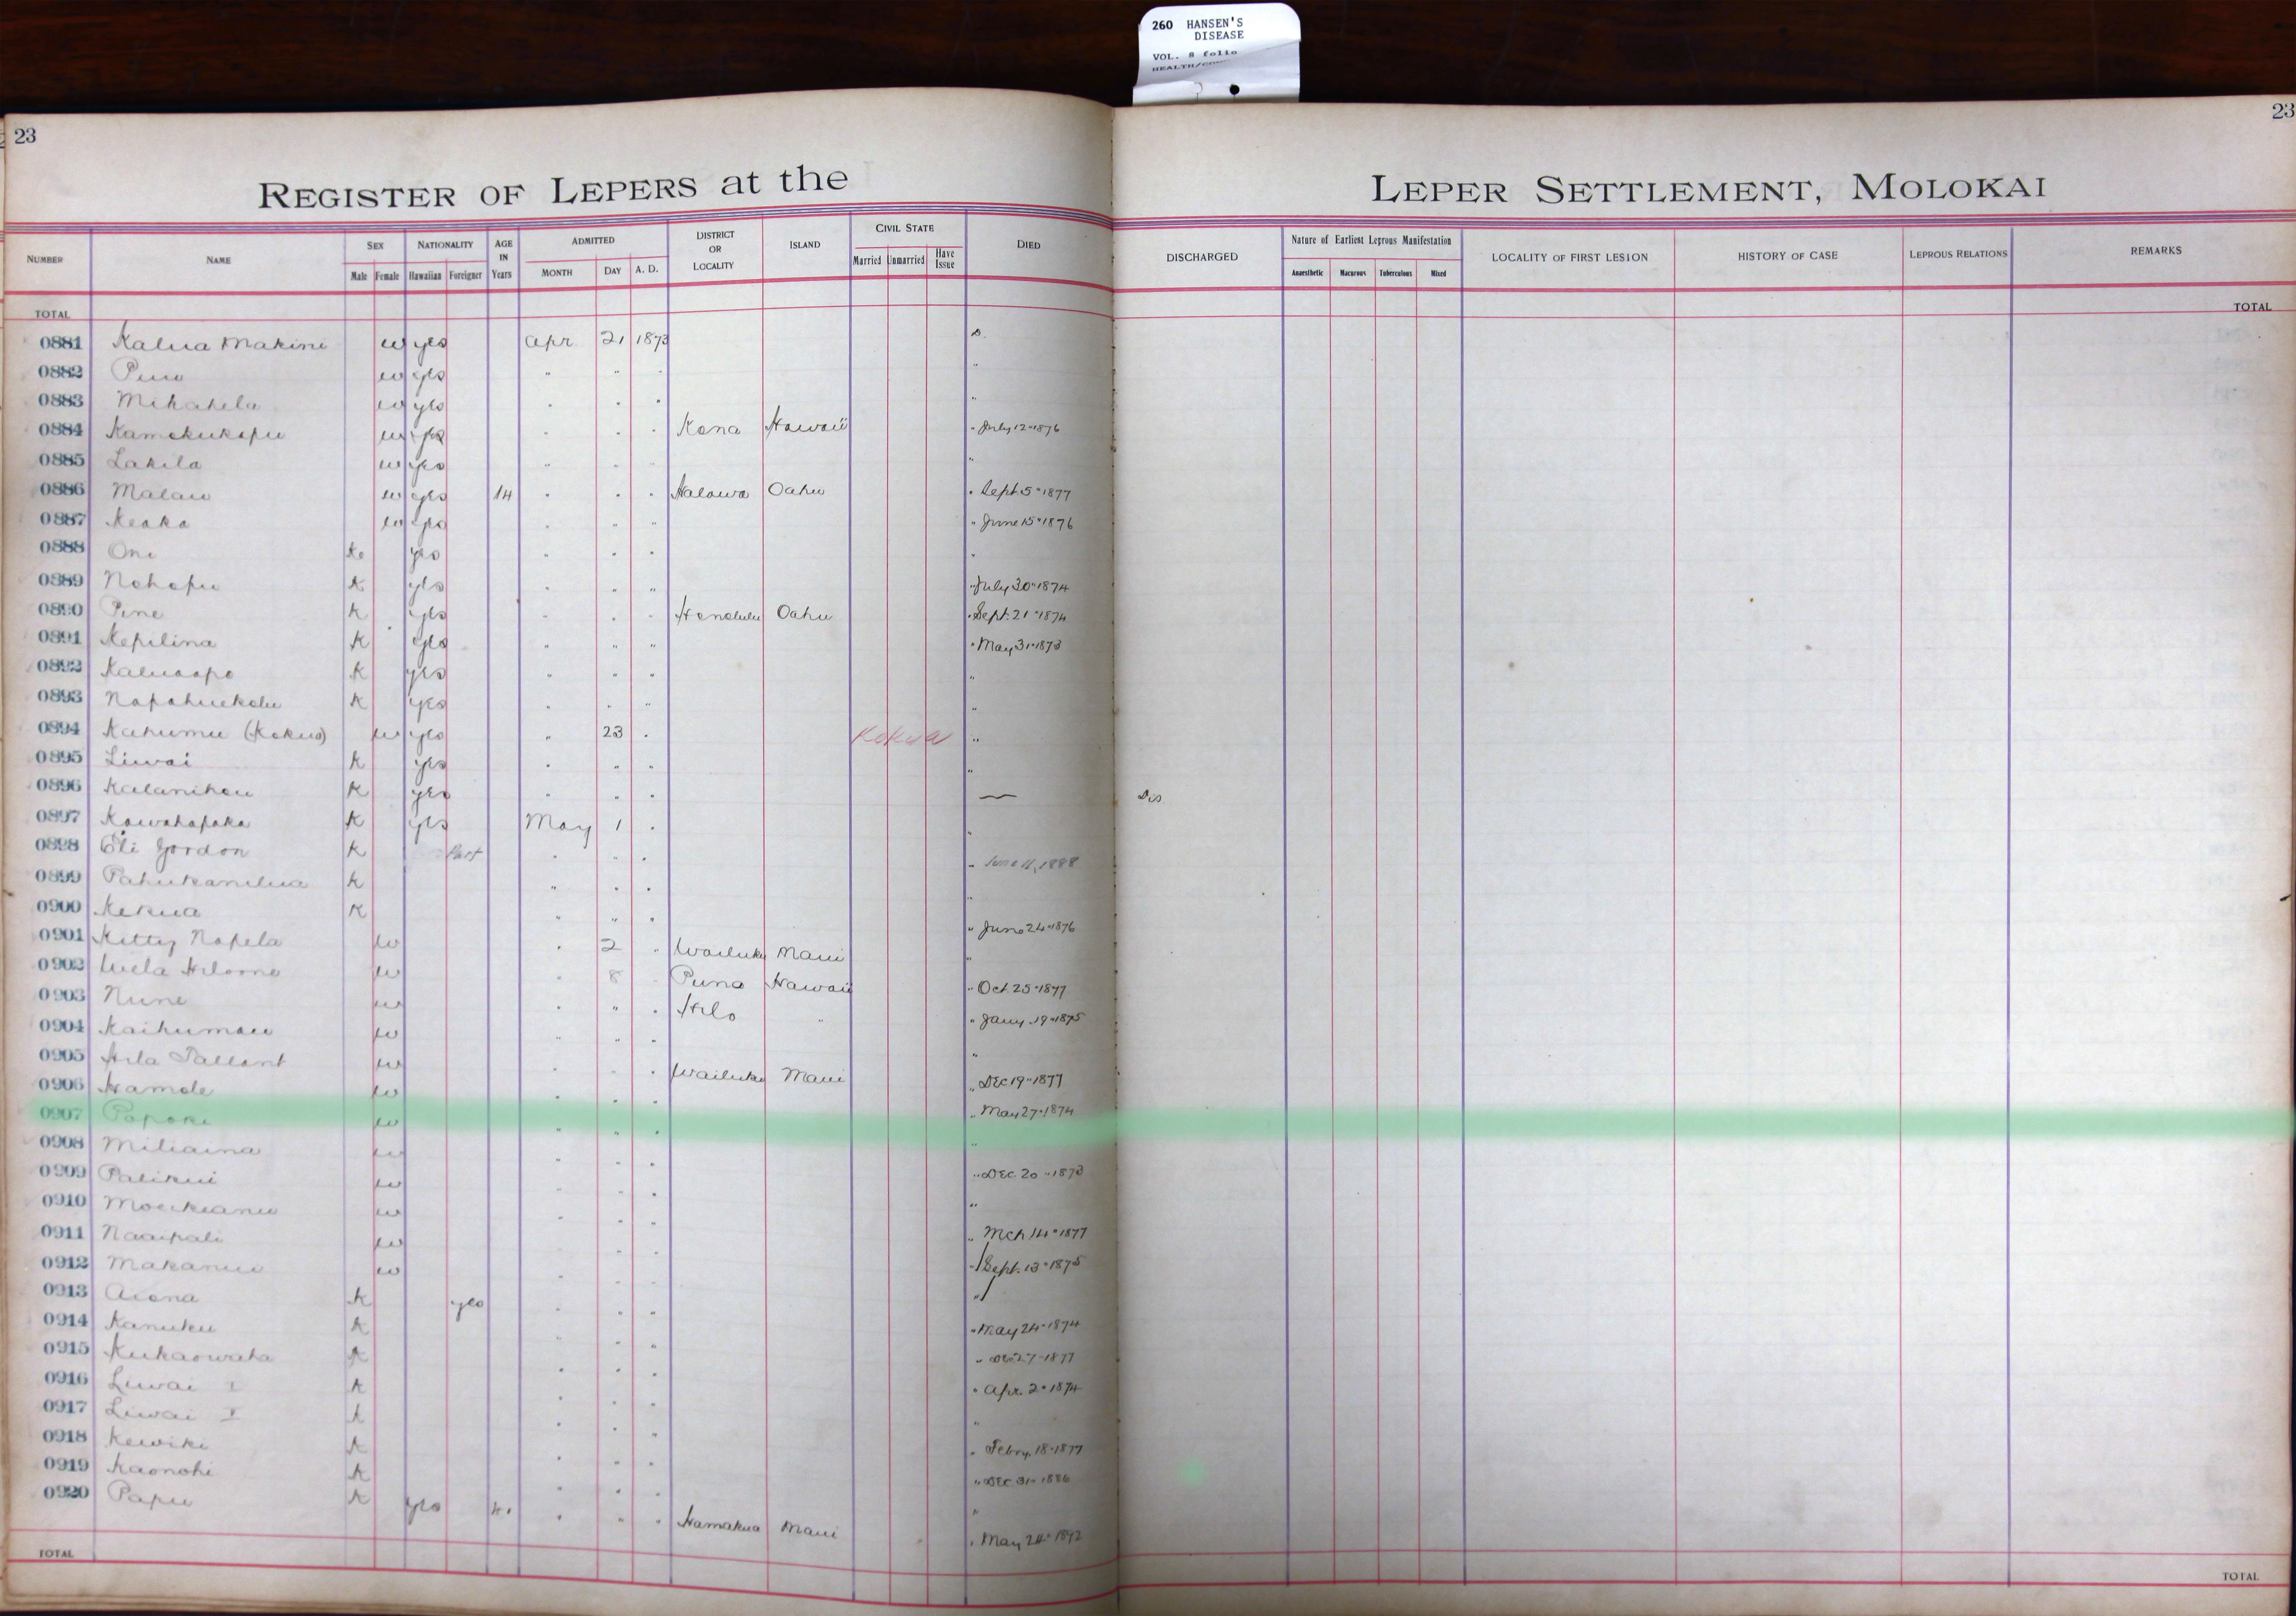 260 HANSEN'S
DISEASE
VOL. 8 folio
23
23
REGISTER OF LEPERS at the LEPER SETTLEMENT, MOLOKAI
NUMBER NAME SEX Male Female NATIONALITY Hawaiian Foreigner AGE IN Years ADMITTED MONTH DAY A. D. DISTRICT OR LOCALITY ISLAND CIVIL STATE Married Unmarried Have Issue DIED DISCHARGED Nature of Earliest Leprous Manifestation Anaesthetic Macurous Tuberculous Mixed LOCALITY OF FIRST LESION HISTORY OF CASE LEPROUS RELATIONS REMARKS
TOTAL TOTAL
0881 Kalua Makini w yes Apr 21 1873 D.
0882 w yes " " " "
0883 Mikahela w yes " " " "
0884 Kamokukapu w yes " " " Kona Hawaii " July 12 " 1876
0885 Lakila w yes " " " "
0886 Malau w yes 14 " " " Halawa Oahu " Sept. 5 " 1877
0887 Keaka w yes " " " " June 15 " 1876
0888 Oni K yes " " " "
0889 Nohopu K yes " " " " July 30 " 1874
0890 Pine K yes " " " Honolulu Oahu " Sept. 21 " 1874
0891 Kepilina K yes " " " " May 31 " 1873
0892 Kaluaapo K yes " " " "
0893 Napahuekolu K yes " " " "
0894 Kahumu (Kokua) w yes " 23 " Kokua "
0895 Liwai K yes " " " "
0896 Kalanihou K yes " " " — Dis
0897 Kawahapaka K yes May 1 " "
0898 Eli Gordon K Part " " " " June 11, 1888
0899 Pahukanilua K " " " "
0900 Kekua K " " " " June 24 " 1876
0901 Kitty Napela w " 2 " Wailuku Maui "
0902 w " 8 " Puna Hawaii " Oct. 25 " 1877
0903 Nune w " " " Hilo " " Jany. 19 " 1875
0904 Kaihumau w " " " "
0905 Hila Tallant w " " " Wailuku Maui " Dec 19 " 1877
0906 Hamole w " " " " May 27 " 1874
0907 Papoki w " " " "
0908 Miliaina w " " " " Dec. 20 " 1873
0909 Palikui w " " " "
0910 Moeikeanu w " " " " Mch 14 " 1877
0911 Naaipali w " " " " Sept. 13 " 1875
0912 Makanui w " " " "
0913 Aiona K yes " " " " May 24 " 1874
0914 Kanuku K " " " " Dec 27 " 1877
0915 Kukaowaha K " " " " Apr. 2 " 1874
0916 Liwai I K " " " "
0917 Liwai K " " " " Febry. 18 " 1877
0918 Kewiki K " " " " Dec 31 " 1886
0919 Kaonohi K " " " "
0920 Papu K yes " " " Hamakua Maui " May 24 " 1892
TOTAL TOTAL